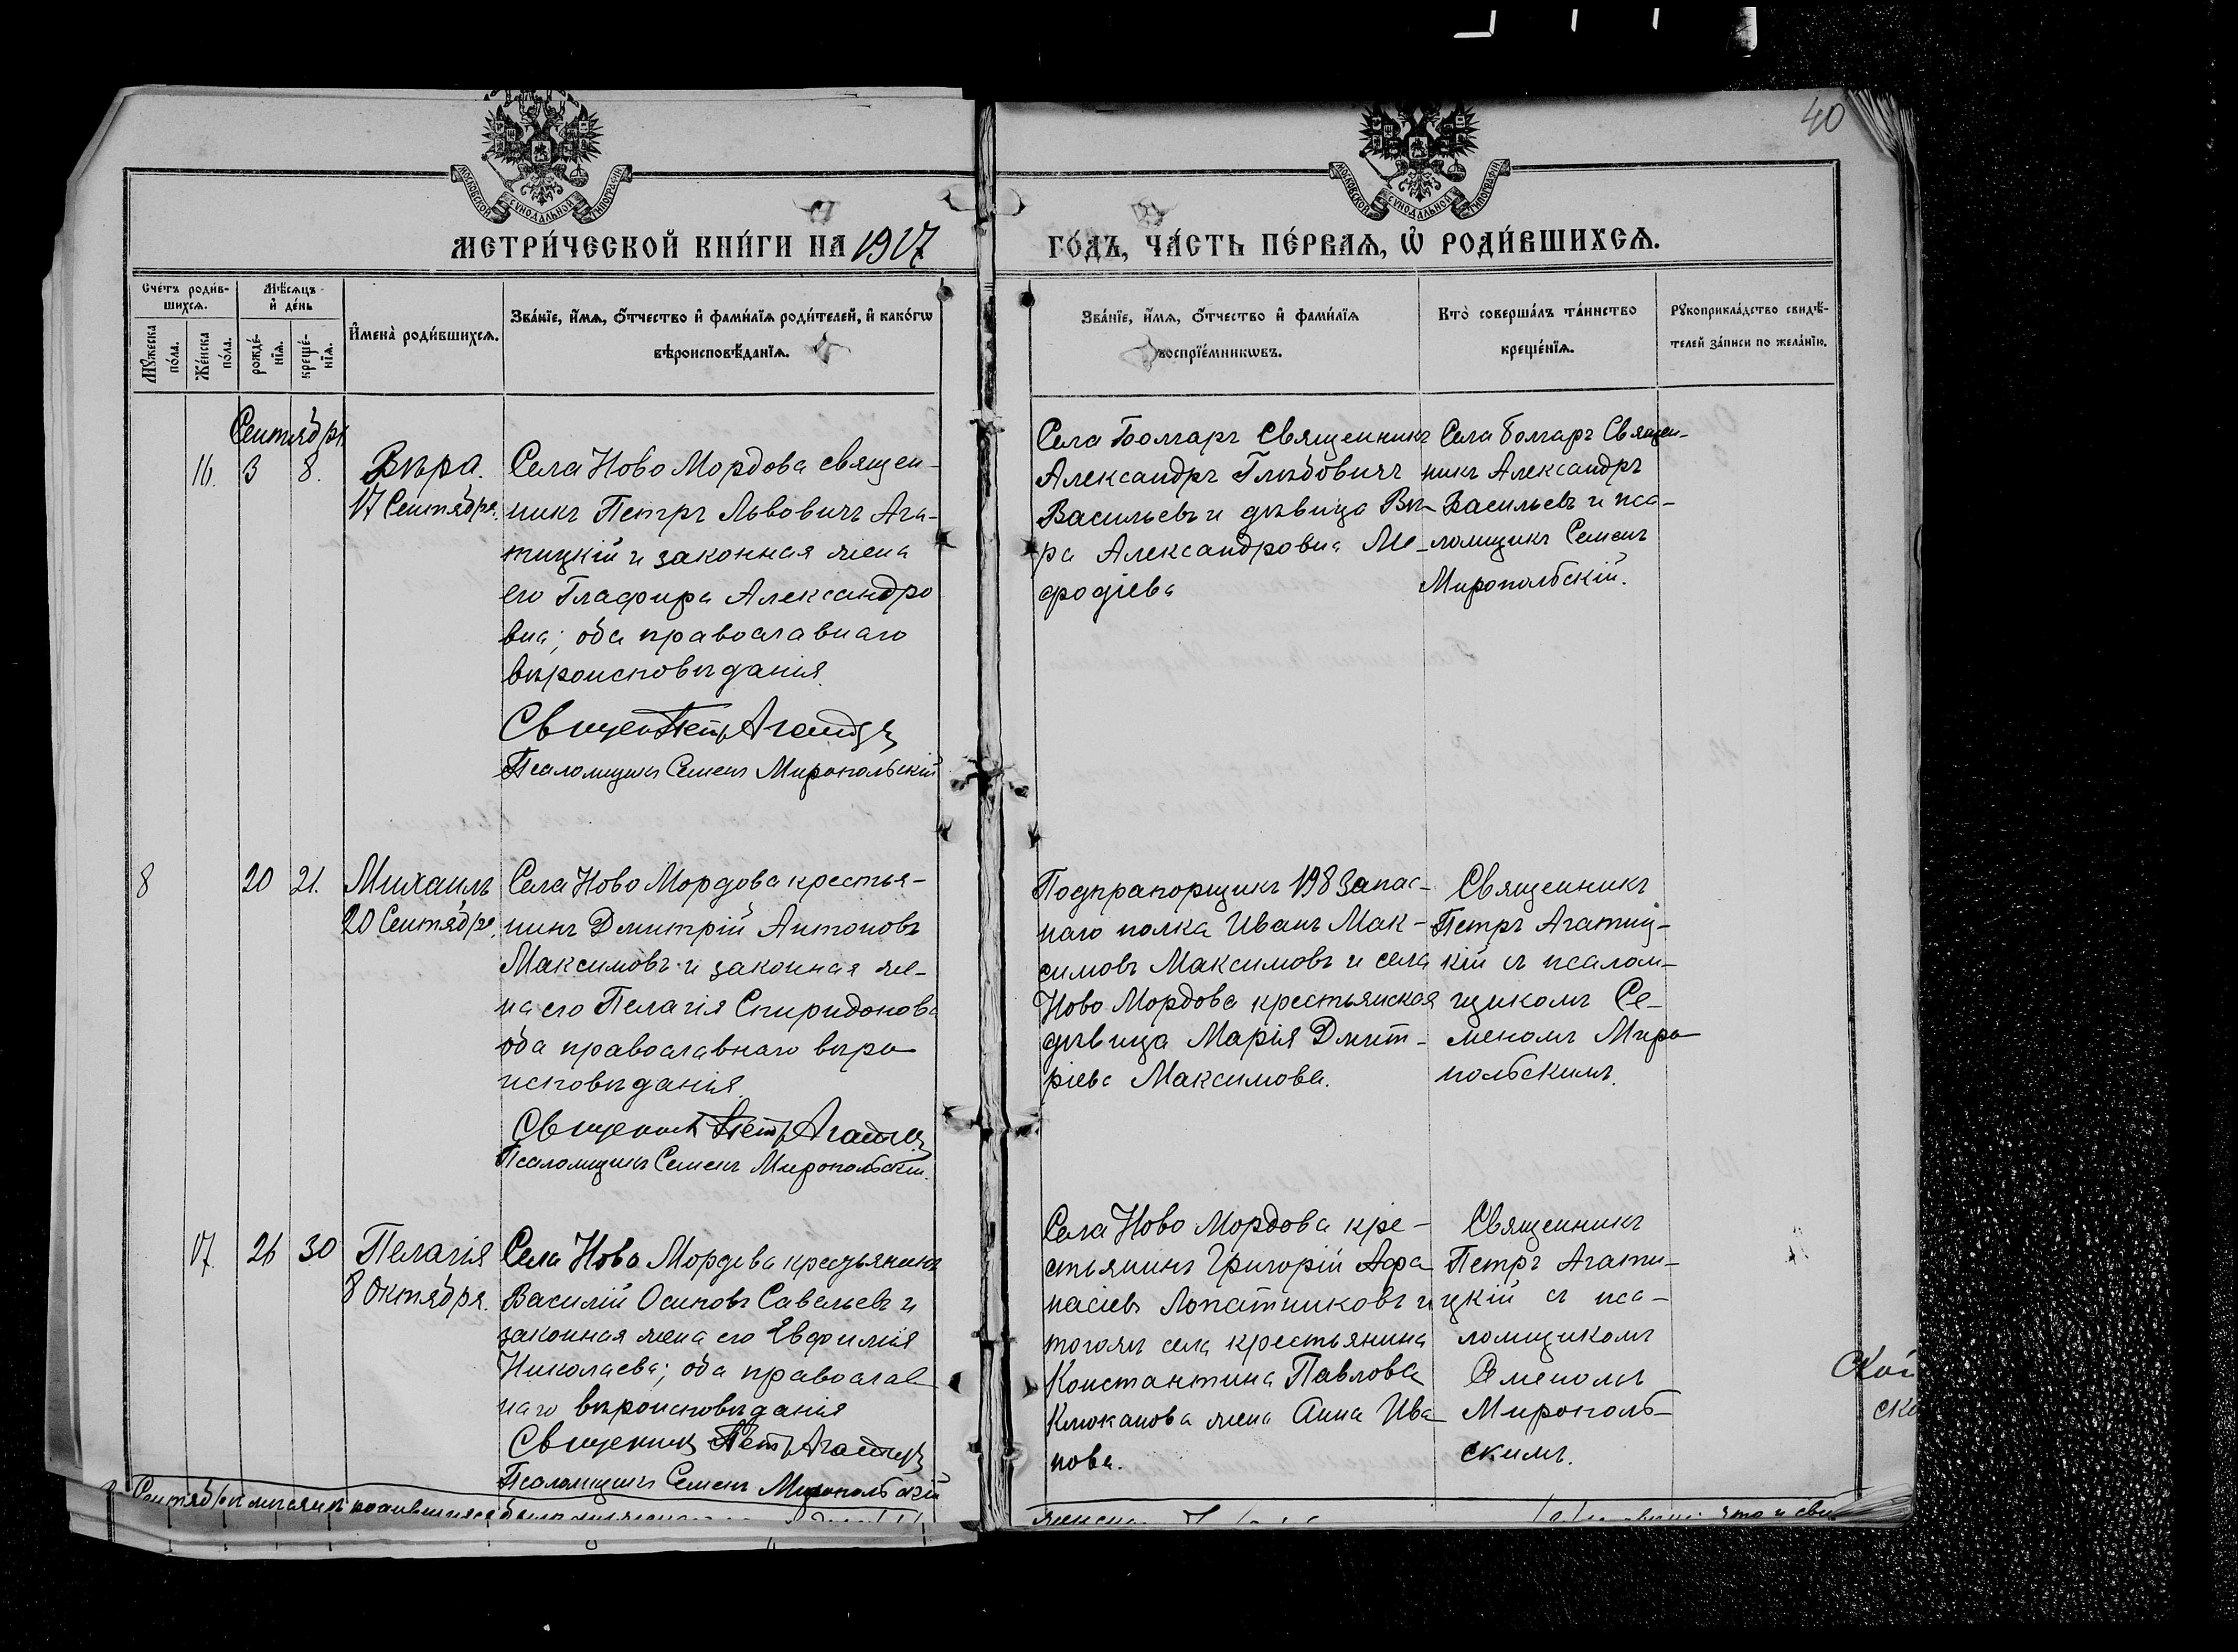 40
МОСКОВСКОЙ СѴНОДАЛЬНОЙ ТИПОГРАФІИ
МОСКОВСКОЙ СѴНОДАЛЬНОЙ ТИПОГРАФІИ
МЕТРИ́ЧЕСКОЙ КНИ́ГИ НА 1917
ГО́ДЪ, ЧА́СТЬ ПЕ́РВАѦ, Ѡ҆ РОДИ́ВШИХСѦ.
Сче́тъ роди́в-
шихсѧ.
Мѣ́сѧцъ
и҆ де́нь
Мꙋ́жеска
по́ла.
Же́нска
по́ла.
рожде́-
нїѧ.
креще́-
нїѧ.
И҆мена̀ роди́вшихсѧ.
Зва́нїе, и҆́мѧ, ѻ҆́тчество и҆ фами́лїѧ роди́телей, и҆ како́гѡ
вѣроисповѣ́данїѧ.
Зва́нїе, и҆́мѧ, ѻ҆́тчество и҆ фами́лїѧ
воспрїе́мникѡвъ.
Кто̀ соверша́лъ та́инство
креще́нїѧ.
Рꙋкоприкла́дство свидѣ́-
телей за́писи по жела́нїю.
Сентября
16. 3 8.
Вѣра.
17 Сентября.
Села Ново Мордова священ-
никъ Петръ Львовичъ Ага-
тицкій и законная жена
его Глафира Александро
вна; оба православнаго
вѣроисповѣданія.
Псаломщикъ Семенъ Миропольскій
Села Болгаръ священникъ
Александръ Глѣбовичъ
Васильевъ и дѣвица Вѣ-
ра Александровна Ме-
фодіева
Села Болгаръ Священ-
никъ Александръ
Васильевъ и пса-
ломщикъ Семенъ
Миропольскій.
8 20 21.
Михаилъ
20 Сентября.
Села Ново Мордова крестья-
нинъ Дмитрій Антоновъ
Максимовъ и законная же-
на его Пелагія Спиридонова
оба православнаго вѣро
исповѣданія.
Священникъ Петръ Агатицкій
Псаломщикъ Семенъ Миропольскій.
Подпрапорщикъ 198 запас-
наго полка Иванъ Мак-
симовъ Максимовъ и села
Ново Мордова крестьянская
дѣвица Марія Дмит-
ріева Максимова.
Священникъ
Петръ Агатиц-
кій съ псалом-
щикомъ Се-
меномъ Миро
польскимъ.
17. 26 30
Пелагія
8 Октября.
Села Ново Мордова крестьянинъ
Василій Осиповъ Савельевъ и
законная жена его Евфимія
Николаева; оба православ
наго вѣроисповѣданія
Священникъ Петръ Агатицкій
Псаломщикъ Семенъ Миропольскій
Села Ново Мордова кре-
стьянинъ Григорій Афа-
насіевъ Лопатниковъ и
тогожъ села крестьянина
Константина Павлова
Клюканова жена Анна Ива
нова.
Священникъ
Петръ Агати-
цкій съ пса-
ломщикомъ
Семеномъ
Мирополь-
скимъ.